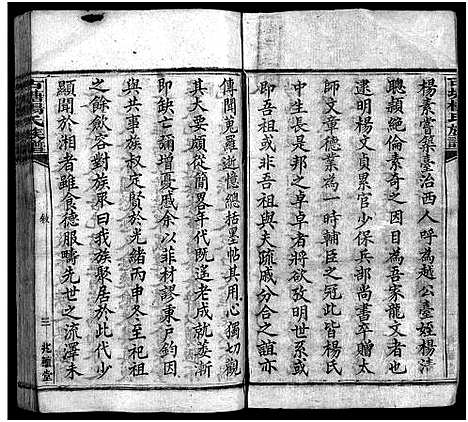 楊素嘗築臺治西人呼為越公臺姪楊汫
聰頴絶倫素奇之因目為吾家龍文者也
逮明楊文貞累官少保兵部尚書卒贈太
師追論德業為一時輔臣之冠此皆楊氏
中生長是邦卓卓者將欲登其世系或
即吾祖或非吾祖與夫疏戚分合之誼亦
傳聞蒐羅逝憶總括墨帖其用心獨切觀
其大要頗從簡畧年代既遠老成就萎漸
即缺亡諵增憂戚余以菲材謬東戸鈞因
與共事族叔定督於光緒丙申冬至祀祖
之餘飲咨對族衆曰我族聚居於此代
顯聞於湘者雖食德服疇先世之流澤未
百坩楊氏族譜
敘
三